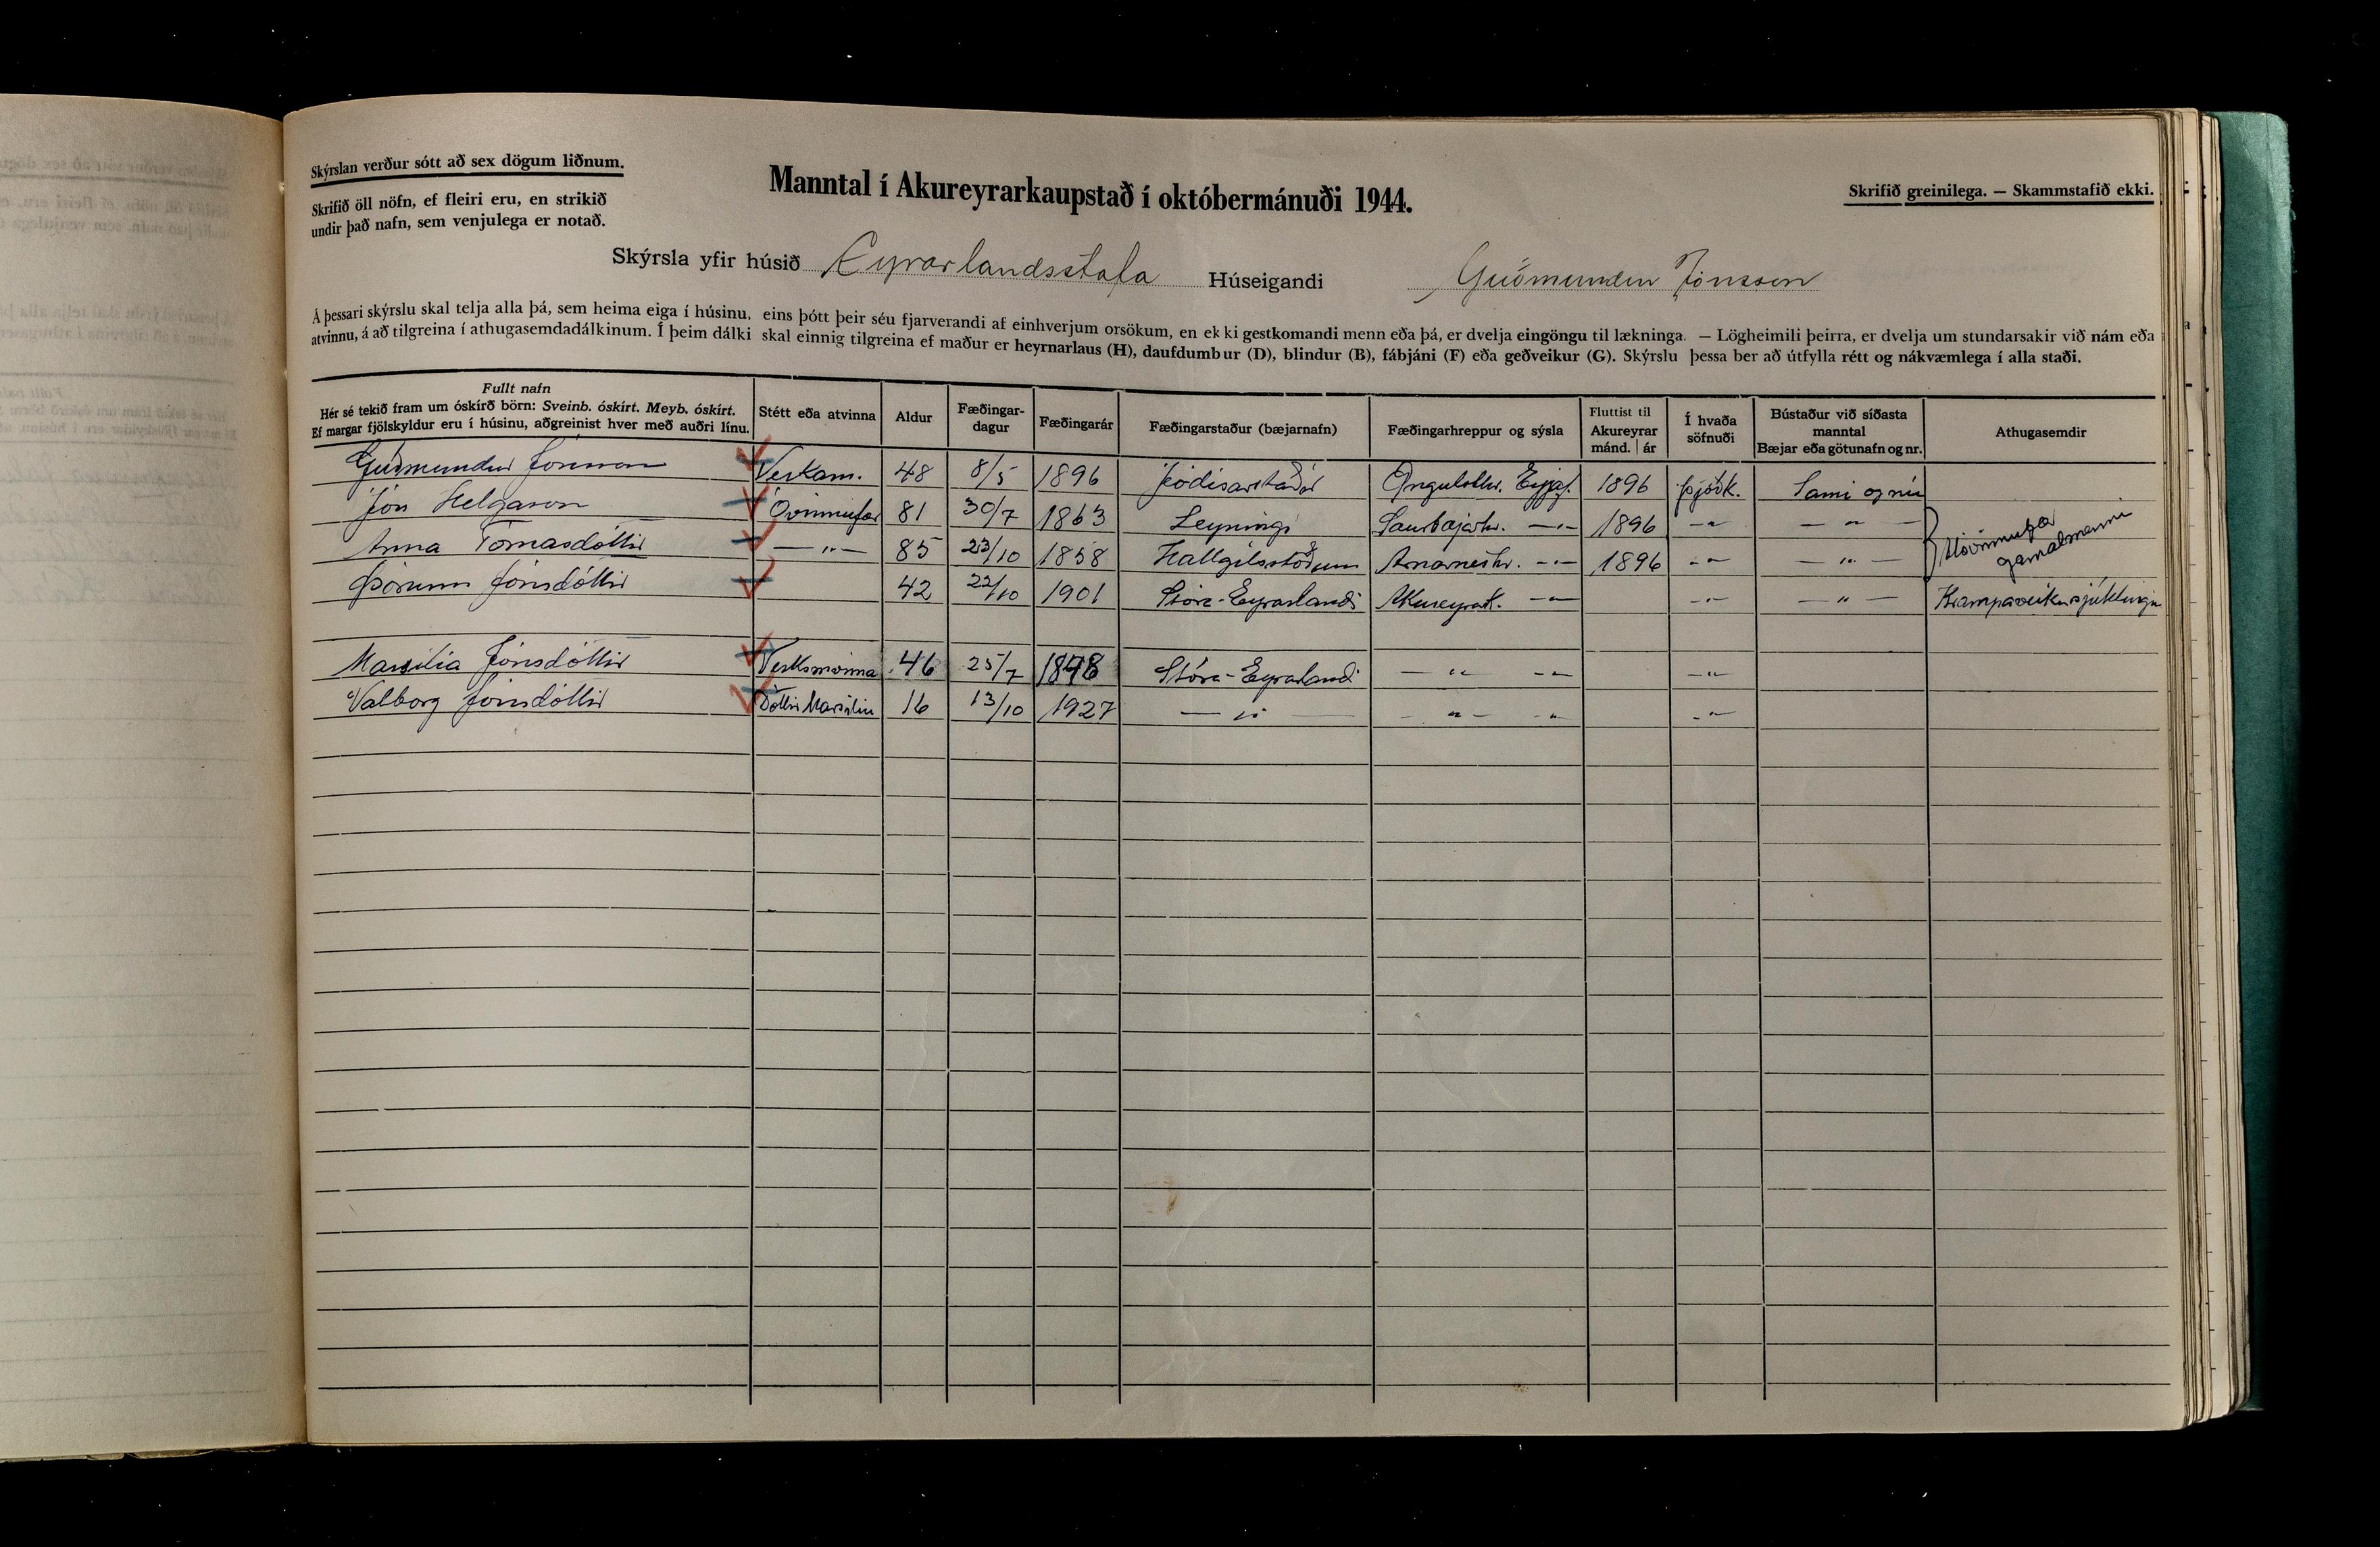 Skýrslan verður sótt að sex dögum liðnum.
Skrifið öll nöfn, ef fleiri eru, en strikið
undir það nafn, sem venjulega er notað.
Manntal í Akureyrarkaupstað í októbermánuði 1944.
Skrifið greinilega. — Skammstafið ekki.
Skýrsla yfir húsið Eyrarlandsstofa Húseigandi Guðmundur Jónsson
Á þessari skýrslu skal telja alla þá, sem heima eiga í húsinu, eins þótt þeir séu fjarverandi af einhverjum orsökum, en ekki gestkomandi menn eða þá, er dvelja eingöngu til lækninga. — Lögheimili þeirra, er dvelja um stundarsakir við nám eða
atvinnu, á að tilgreina í athugasemdadálkinum. Í þeim dálki skal einnig tilgreina ef maður er heyrnarlaus (H), daufdumbur (D), blindur (B), fábjáni (F) eða geðveikur (G). Skýrslu þessa ber að útfylla rétt og nákvæmlega í alla staði.
Fullt nafn
Hér sé tekið fram um óskírð börn: Sveinb. óskírt. Meyb. óskírt.
Ef margar fjölskyldur eru í húsinu, aðgreinist hver með auðri línu.
Stétt eða atvinna
Aldur
Fæðingar-
dagur
Fæðingarár
Fæðingarstaður (bæjarnafn)
Fæðingarhreppur og sýsla
Fluttist til
Akureyrar
mánd. | ár
Í hvaða
söfnuði
Bústaður við síðasta
manntal
Bæjar eða götunafn og nr.
Athugasemdir
Guðmundur Jónsson Verkam. 48 8/5 1896 Þórðisarstaðir Öngulsthr. Eyjaf. 1896 þjóðk. Sami og nú
Jón Helgason Óvinnufær 81 30/7 1863 Leyningi Saurbæjarhr. —"— 1896 -"- — " —
Anna Tómasdóttir — " — 85 23/10 1858 Hallgilsstöðum Arnarneshr. -"- 1896 -"- — " —
Óvinnufær
gamalmenni
Þórunn Jónsdóttir 42 22/10 1901 Stóra-Eyrarlandi Akureyrark. -"- -"- — " — Krampaveikissjúklingur
Marsilía Jónsdóttir Verksm.vinna 46 25/7 1898 Stóra-Eyrarlandi — " — -"- -"-
Valborg Jónsdóttir Dóttir Marsilíu 16 13/10 1927 — " — - " - -"- -"-